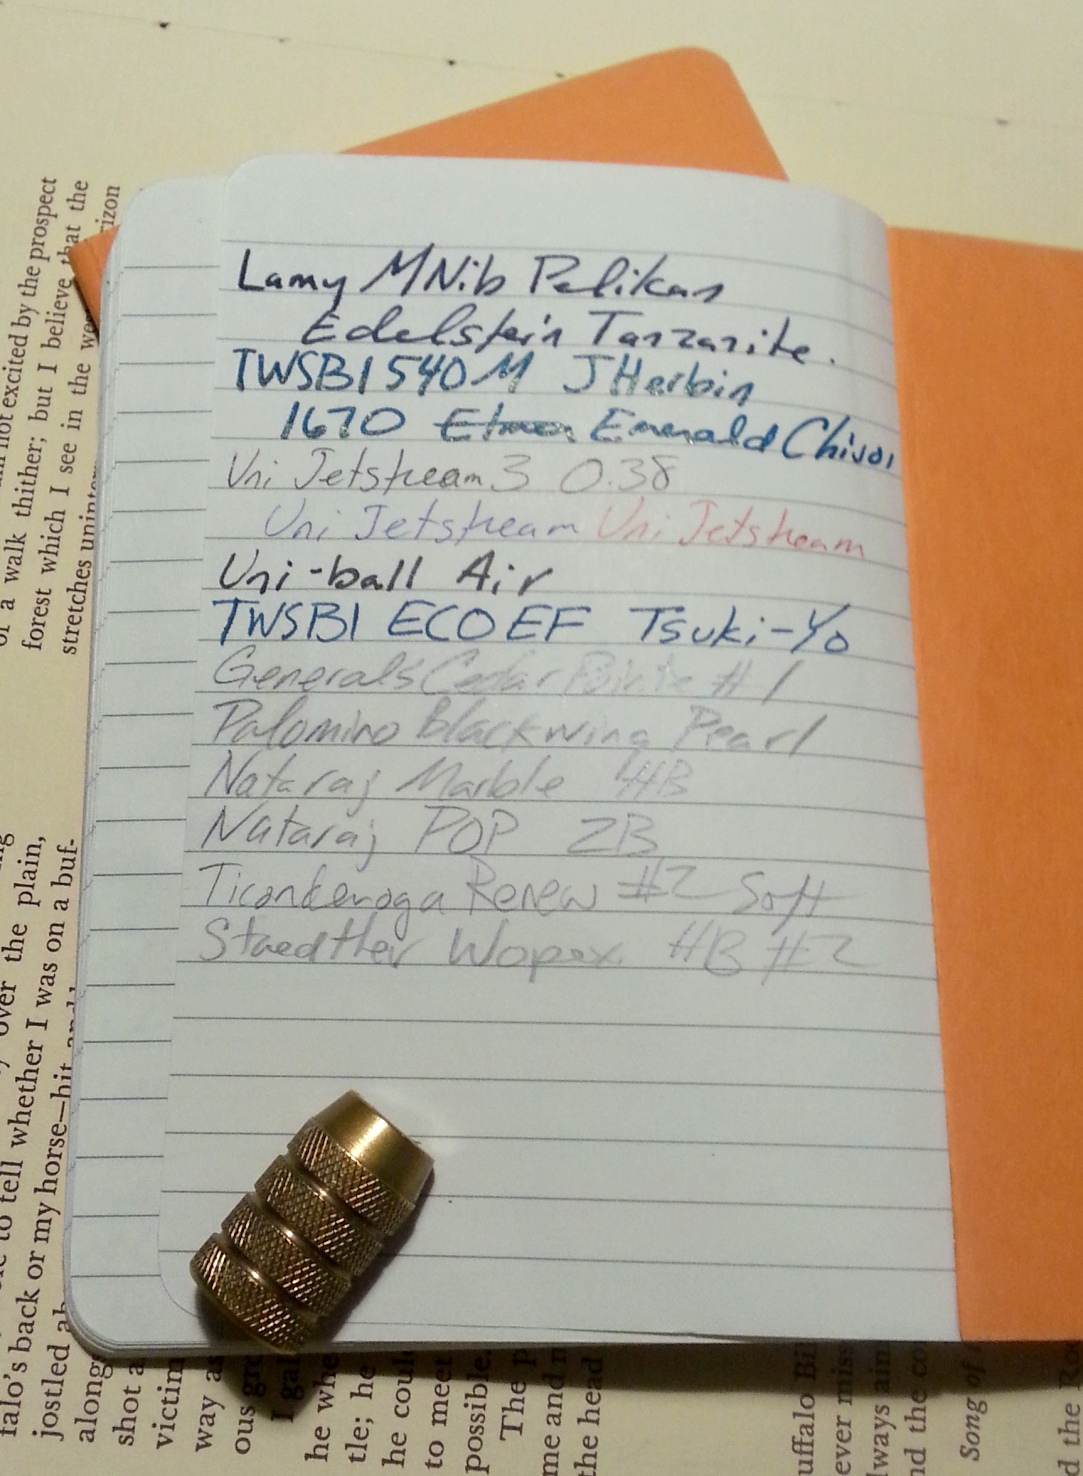 Lamy M Nib Pelikan
Edelstein Tanzanite.
TWSBI 540 M J Herbin
1670 Emerald Chivor
Uni Jetstream 3 0.38
Uni Jetstream Uni Jetstream
Uni-ball Air
TWSBI ECO EF Tsuki-Yo
Generals Cedar Pointe #1
Palomino Blackwing Pearl
Nataraj Marble HB
Nataraj POP 2B
Ticonderoga Renew #2 Soft
Staedtler Wopex HB #2
not excited by the prospect
of a walk thither; but I believe that the
forest which I see in the
stretches
over the plain,
to tell whether I was on a buf-
falo's back or my horse—hit
jostled
along
shot a
victim
way as
ous
I gal
he whe
tle; he
he coul
to meet
possible.
The p
me and
the head
uffalo Bil
ever miss
lways aim
nd the co
Song of
d the